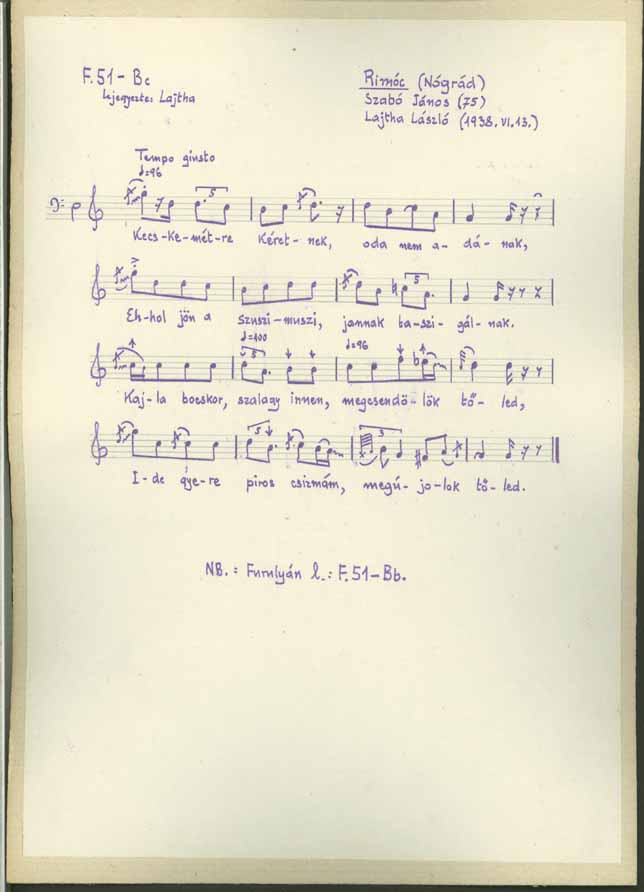 F.51 - Bc
Lejegyezte: Lajtha
Rimóc (Nógrád)
Szabó János (75)
Lajtha László (1938. VI. 13.)
Tempo giusto
♩=96
Kecs-ke-mét-re Kéret-nek, oda nem a-dá-nak,
Eh-hol jön a szuszi-muszi, jannak ta-szi-gál-nak.
♩=100 ♩=96
Kaj-la bocskor, szalagy innen, megcsendö-lök tő-led,
I-de gye-re piros csizmám, megú-jo-lok tő-led.
NB. : Furulyán l. : F.51-Bb.